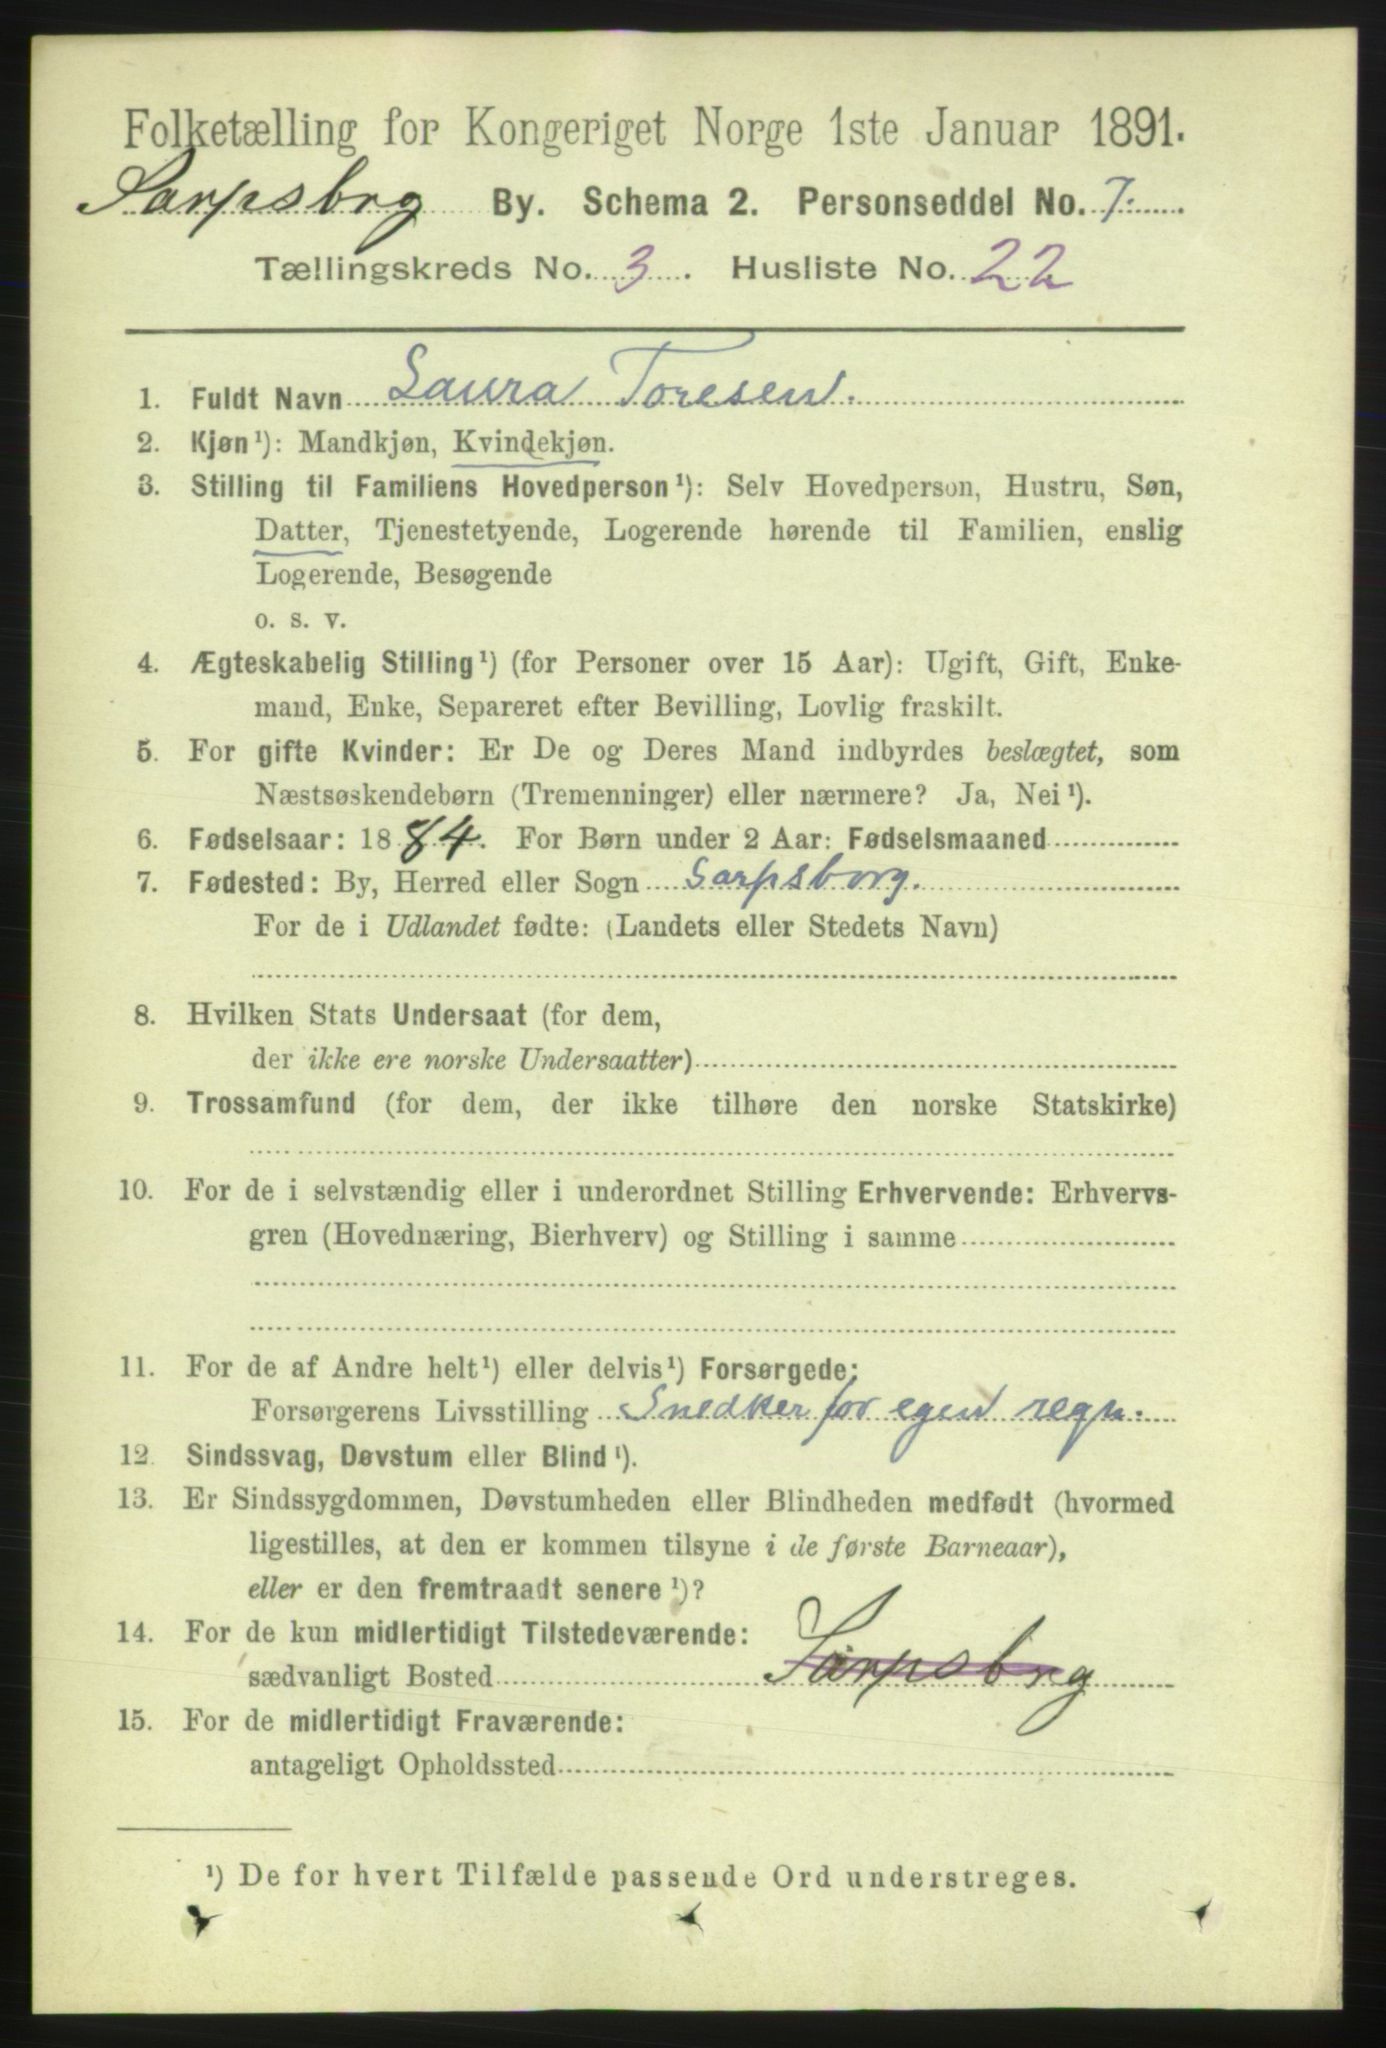 Folketælling for Kongeriget Norge 1ste Januar 1891.
Sarpsbrg By. Schema 2. Personseddel No. 7.
Tællingskreds No. 3. Husliste No. 22
1. Fuldt Navn Laura Toresen.
2. Kjøn ¹): Mandkjøn, Kvindekjøn.
3. Stilling til Familiens Hovedperson ¹): Selv Hovedperson, Hustru, Søn,
Datter, Tjenestetyende, Logerende hørende til Familien, enslig
Logerende, Besøgende
o. s. v.
4. Ægteskabelig Stilling ¹) (for Personer over 15 Aar): Ugift, Gift, Enke-
mand, Enke, Separeret efter Bevilling, Lovlig fraskilt.
5. For gifte Kvinder: Er De og Deres Mand indbyrdes beslægtet, som
Næstsøskendebørn (Tremenninger) eller nærmere? Ja, Nei ¹).
6. Fødselsaar: 1884. For Børn under 2 Aar: Fødselsmaaned
7. Fødested: By, Herred eller Sogn Sarpsborg.
For de i Udlandet fødte: (Landets eller Stedets Navn)
8. Hvilken Stats Undersaat (for dem,
der ikke ere norske Undersaatter)
9. Trossamfund (for dem, der ikke tilhøre den norske Statskirke)
10. For de i selvstændig eller i underordnet Stilling Erhvervende: Erhvervs-
gren (Hovednæring, Bierhverv) og Stilling i samme
11. For de af Andre helt ¹) eller delvis ¹) Forsørgede:
Forsørgerens Livsstilling Snedker for egen regn.
12. Sindssvag, Døvstum eller Blind ¹).
13. Er Sindssygdommen, Døvstumheden eller Blindheden medfødt (hvormed
ligestilles, at den er kommen tilsyne i de første Barneaar),
eller er den fremtraadt senere ¹)?
14. For de kun midlertidigt Tilstedeværende:
sædvanligt Bosted Sarpsbrg
15. For de midlertidigt Fraværende:
antageligt Opholdssted
¹) De for hvert Tilfælde passende Ord understreges.